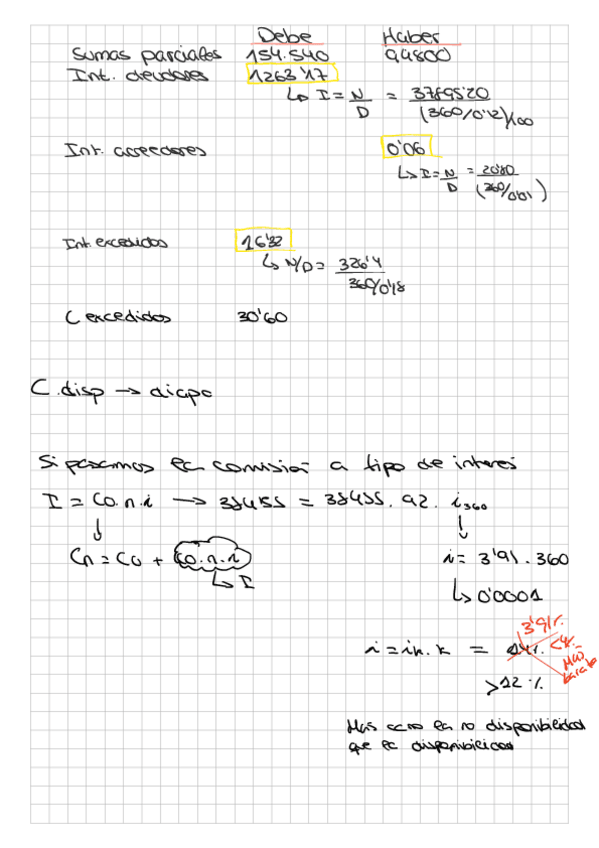 Debe Haber
Sumas parciales 154.540 94800
Int. deudores 1263'17
↳ I = N/D = 37895'20/(360/0'12)/100
Int. acreedores 0'06
↳ I = N/D = 20'80/(360/0'01)
Int excedidos 16'32
↳ N/D = 326'4/360/0'18
C excedidos 30'60
C. disp → diapo
Si pasamos la comisión a tipo de interés
I = C0.n.i → 384'55 = 38455.92. i360
↓ ↓
Cn = C0 + C0.n.i i = 3'91.360
↳ I ↳ 0'0001
3'91%
i = ik.k = 14% <4%
Más barato
>12%
Mas caro la no disponibilidad
que la disponibilidad